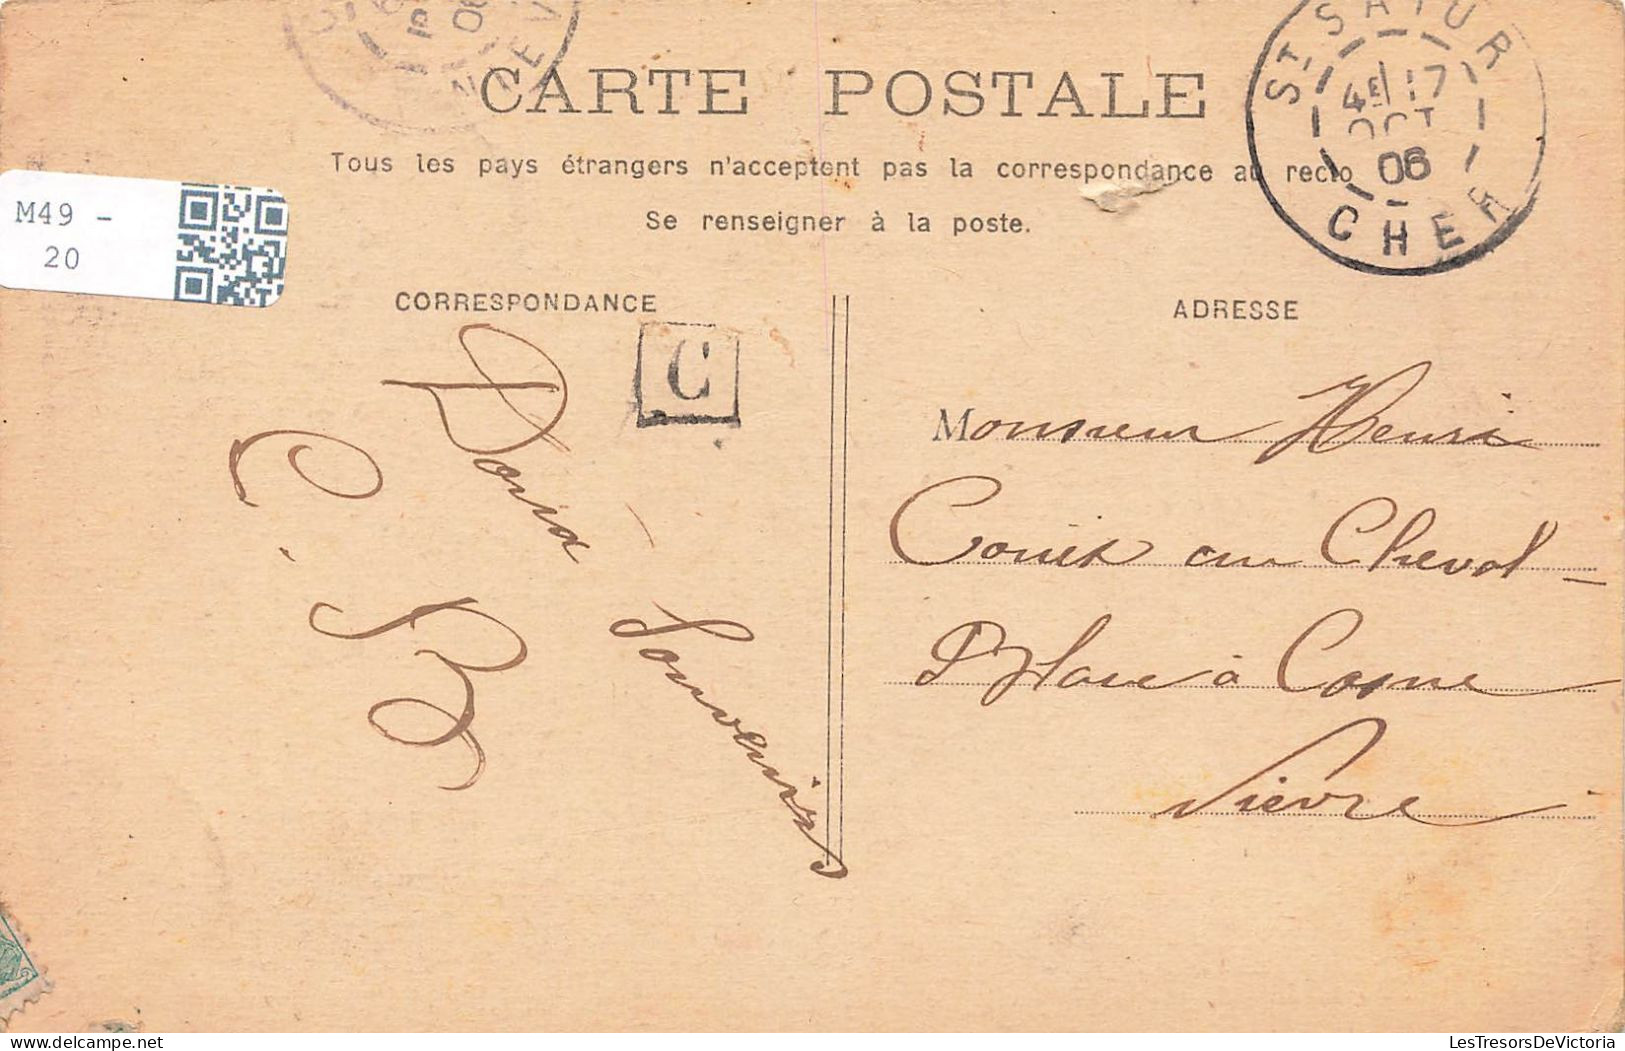 CARTE POSTALE
Tous les pays étrangers n'acceptent pas la correspondance au recto
Se renseigner à la poste.
M49 -
20
ST SATUR
4E 17
OCT
06
CHER
06
CORRESPONDANCE
C
Doux
Souvenirs
C. B
ADRESSE
Monsieur Henri
au Cheval-
Blanc à Cosne
Nièvre
LesTresorsDeVictoria
delcampe.net